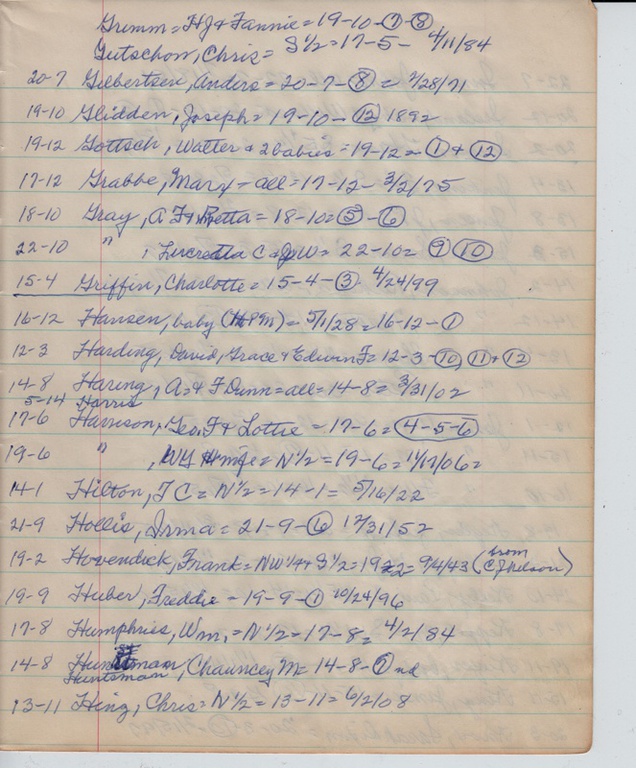 Grimm = HJ & Fannie = 19-10-⑦-⑧
Gutschow, Chris = S½ = 17-5- 4/11/84
20-7 Gilbertsen, Anders = 20-7-⑧ = 2/28/71
19-10 Glidden, Joseph = 19-10-⑫ 1892
19-12 Gottsch, Walter & 2 babies = 19-12 = ① + ⑫
17-12 Grabbe, Mary - all = 17-12- 3/2/75
18-10 Gray, A F & Retta = 18-10 = ⑤-⑥
22-10 " , Lucretia C = JW = 22-10 = ⑨ ⑩
15-4 Griffin, Charlotte = 15-4-③ 4/24/99
16-12 Hansen, baby (HPM) = 5/1/28 = 16-12-①
12-3 Harding, David, Grace & Edwin F = 12-3-⑩, ⑪ + ⑫
14-8 Haring, A = & F Dunn = all = 14-8 = 3/31/02
5-14 Harris
17-6 Harrison, Geo. F & Lottie = 17-6 = (4-5-6)
19-6 " , WG = N½ = 19-6 = 11/17/06 =
14-1 Hilton, F C = N½ = 14-1 = 5/16/22
21-9 Hollis, Irma = 21-9-⑥ 12/31/52
19-2 Hovendick, Frank = NW¼ + S½ = 19-2 = 9/4/43 (from C J Nelson)
19-9 Huber, Freddie - 19-9-① 10/24/96
17-8 Humphries, Wm. = N½ = 17-8 = 4/2/84
14-8 Huntsman, Chauncey M = 14-8-⑦ nd
Huntsman
13-11 Hing, Chris = N½ = 13-11 = 6/2/08